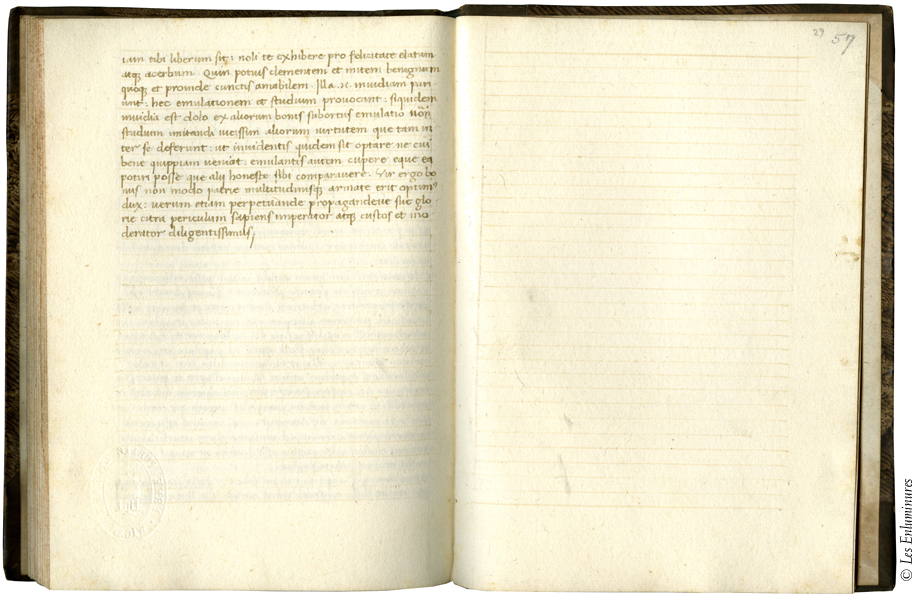 tam tibi liberum sit: noli te exhibere pro felicitate elatum
atq; acerbum. Quin potius clementem et mitem benignum
quoq; et proinde cunctis amabilem. Illa .n. invidiam pari
unt: hec emulationem et studium provocant: siquidem
invidia est dolo ex aliorum bonis subortus emulatio
studium imitandi aliorum virtutem que tam in
ter se deferunt: ut invidentis quidem sit optare ne cui
bene quippiam veniat: emulantis autem cupere eque ea
potiri posse que alii honeste sibi comparavere. Vir ergo bo
nus non modo patrie multitudinisq; armate erit optim9
dux: verum etiam perpetuande propagandeve sue glo
rie citra periculum sapiens imperator atq; custos et mo
derator diligentissimus;
29 57
© Les Enluminures